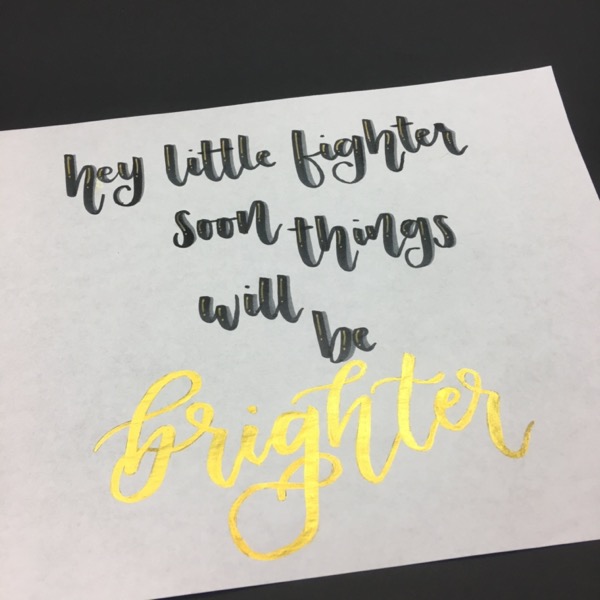 hey little fighter
soon things
will be
brighter